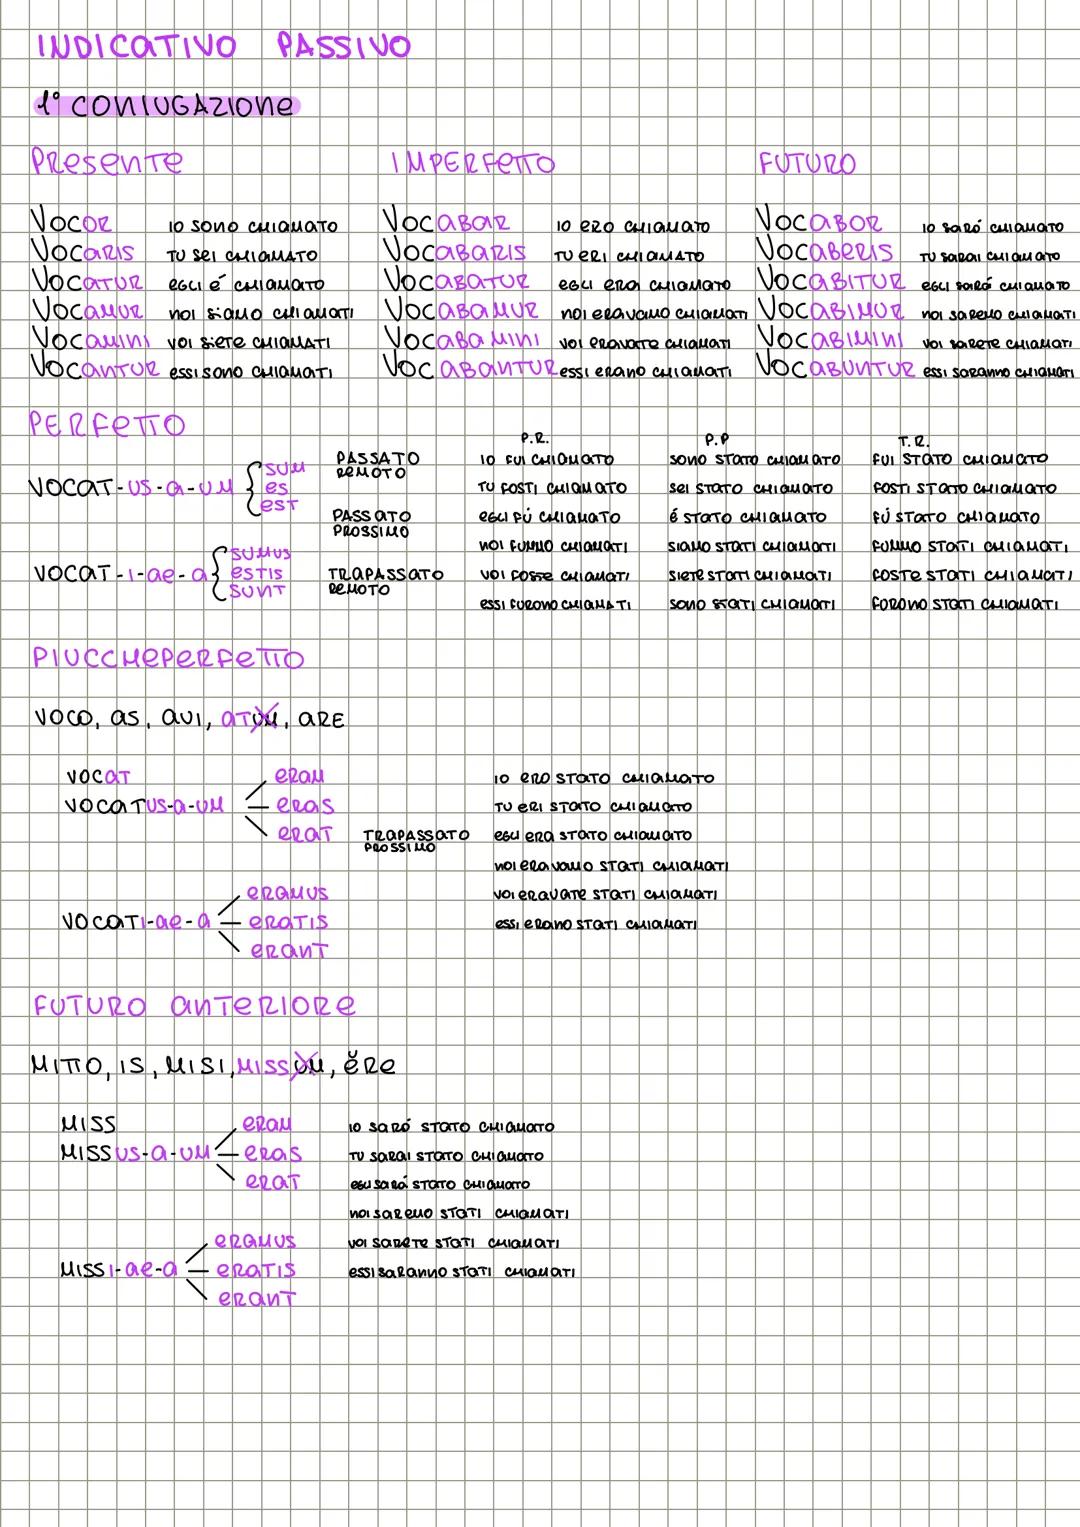 INDICATIVO PASSIVO
1° CONIUGAZIONE
PRESENTE IMPERFETTO FUTURO
VOCOR IO SONO CHIAMATO VOCABAR IO ERO CHIAMATO VOCABOR IO SARÓ CHIAMATO
VOCARIS TU SEI CHIAMATO VOCABARIS TU ERI CHIAMATO VOCABERIS TU SARAI CHIAMATO
VOCATUR EGLI É CHIAMATO VOCABATUR EGLI ERA CHIAMATO VOCABITUR EGLI SARÓ CHIAMATO
VOCAMUR NOI SIAMO CHIAMATI VOCABAMUR NOI ERAVAMO CHIAMATI VOCABIMUR NOI SAREMO CHIAMATI
VOCAMINI VOI SIETE CHIAMATI VOCABAMINI VOI ERAVATE CHIAMATI VOCABIMINI VOI SARETE CHIAMATI
VOCANTUR ESSI SONO CHIAMATI VOCABANTUR ESSI ERANO CHIAMATI VOCABUNTUR ESSI SARANNO CHIAMATI
PERFETTO
P.R. P.P T.R.
SUM PASSATO REMOTO IO FUI CHIAMATO SONO STATO CHIAMATO FUI STATO CHIAMATO
VOCAT-US-A-UM ES TU FOSTI CHIAMATO SEI STATO CHIAMATO FOSTI STATO CHIAMATO
EST PASSATO PROSSIMO EGLI FÚ CHIAMATO É STATO CHIAMATO FÚ STATO CHIAMATO
SUMUS NOI FUMMO CHIAMATI SIAMO STATI CHIAMATI FUMMO STATI CHIAMATI
VOCAT-I-AE-A ESTIS TRAPASSATO REMOTO VOI FOSTE CHIAMATI SIETE STATI CHIAMATI FOSTE STATI CHIAMATI
SUNT ESSI FURONO CHIAMATI SONO STATI CHIAMATI FORONO STATI CHIAMATI
PIUCCHEPERFETTO
VOCO, AS, AVI, ATUM, ARE
VOCAT ERAM IO ERO STATO CHIAMATO
VOCATUS-A-UM ERAS TU ERI STATO CHIAMATO
ERAT TRAPASSATO PROSSIMO EGLI ERA STATO CHIAMATO
NOI ERAVAMO STATI CHIAMATI
ERAMUS VOI ERAVATE STATI CHIAMATI
VOCATI-AE-A ERATIS ESSI ERANO STATI CHIAMATI
ERANT
FUTURO ANTERIORE
MITTO, IS, MISI, MISSUM, ĔRE
MISS ERAM IO SARÓ STATO CHIAMATO
MISSUS-A-UM ERAS TU SARAI STATO CHIAMATO
ERAT EGLI SARÁ STATO CHIAMATO
NOI SAREMO STATI CHIAMATI
ERAMUS VOI SARETE STATI CHIAMATI
MISSI-AE-A ERATIS ESSI SARANNO STATI CHIAMATI
ERANT